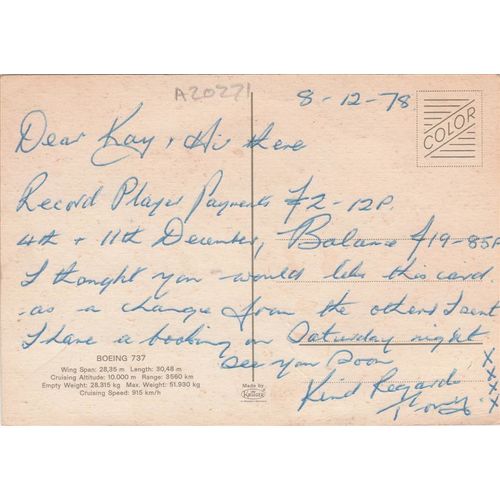 A20271
8-12-78
COLOR
Dear Kay + Hi there
Record Player Payments £2-12P.
4th + 11th December, Balance £19-85P
I thought you would like this card
as a change from the others I sent
I have a booking on Saturday night
see you soon
Kind Regards
xxxx
BOEING 737
Wing Span: 28,35 m Length: 30,48 m
Cruising Altitude: 10.000 m Range: 3560 km
Empty Weight: 28.315 kg Max. Weight: 51.930 kg
Cruising Speed: 915 km/h
Made by